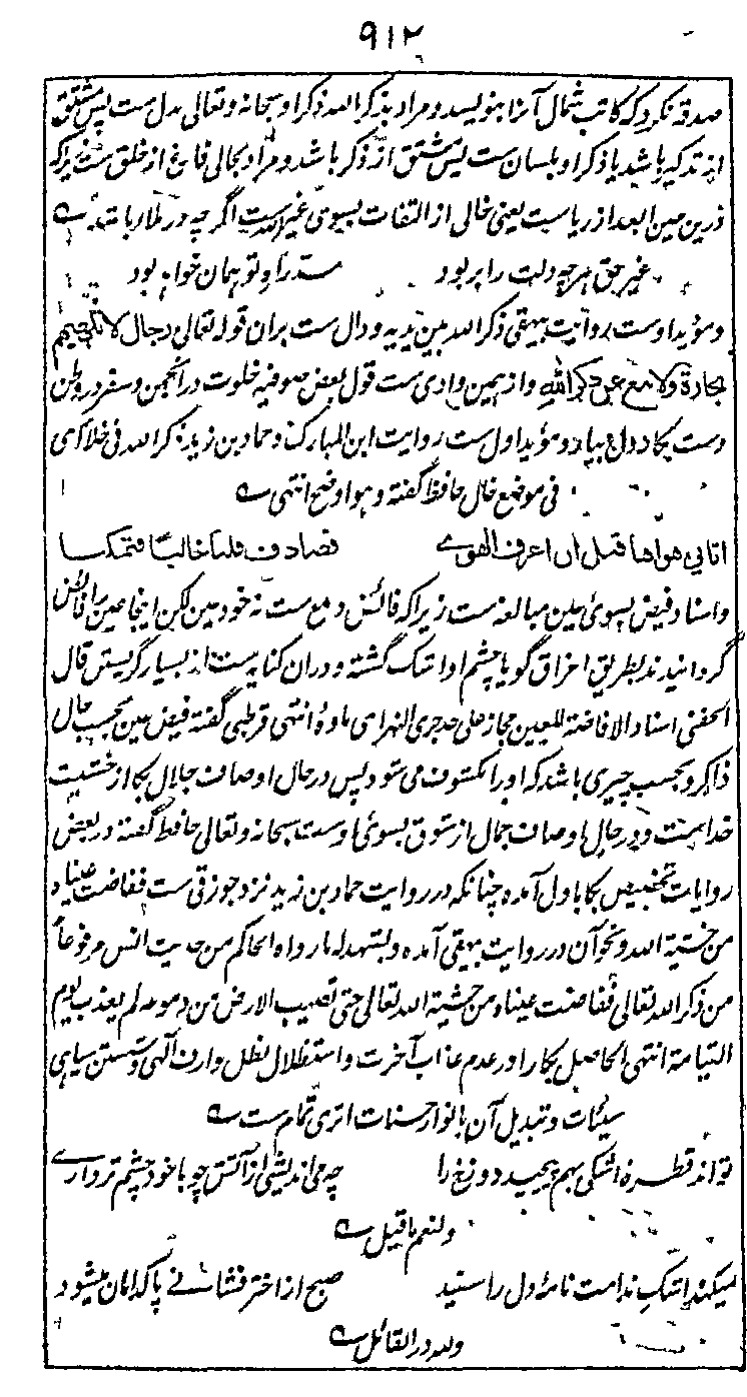 ۹۱۲
صدقہ نکرد کہ کاتب شمال آنرا بنویسد و مراد بذکر اللہ ذکر او سبحانہ و تعالی بدل ست پس مشتق
از تذکیر باشد یا ذکر او بلسان ست پس مشتق از ذکر باشد و مراد بخالی فارغ از خلق ست زیراکہ
درین حین ابعد از ریاست یعنی خالی از التفات بسوئ غیر اللہ ست اگرچہ در ملا باشد ؎
غیر حق ہرچہ دلت را بربود سد راہ تو ہمان خواہد بود
و مؤید اوست روایت بیہقی ذکر اللہ بین یدیہ و دال ست بران قولہ تعالی رجال لا تلہیہم
تجارۃ ولا بیع عن ذکر اللہ و از ہمین وادی ست قول بعض صوفیہ خلوت در انجمن و سفر در وطن
دست بکار و دل بیار و مؤید اول ست روایت ابن المبارک و حماد بن زید ذکر اللہ فی خلا ای
فی موضع خال حافظ گفتہ و ہو اوضح انتہی ؎
اتانی هواها قبل ان اعرف الهوے فصادف قلبا خالیا فتمکنا
و اسناد فیض بسوئ عین مبالغہ ست زیراکہ فائض دمع ست نہ خود عین لکن اینجا عین را فائض
گردانیدند بطریق اغراق گویا چشم او اشک گشتہ و دران کنایہ ست از بسیار گریستن قال
الحفنی اسناد الافاضۃ للعین مجاز علی حد جری النہر ای ماؤہ انتہی قرطبی گفتہ فیض عین بحسب حال
ذاکر و بحسب چیزی باشد کہ او را مکشوف می شود پس در حال اوصاف جلال بکا از خشیت
خداست و در حال اوصاف جمال از شوق بسوئ اوست سبحانہ و تعالی حافظ گفتہ در بعض
روایات تخصیص بکا باول آمدہ چنانکہ در روایت حماد بن زید نزد جوزقی ست ففاضت عیناہ
من خشیۃ اللہ و نحو آن در روایت بیہقی آمدہ و یشہد لہ ما رواہ الحاکم من حدیث انس مرفوعاً
من ذکر اللہ تعالی ففاضت عیناہ من خشیۃ اللہ تعالی حتی تصیب الارض من دموعہ لم یعذب یوم
القیامۃ انتہی الحاصل بکا را در عدم عذاب آخرت و استظلال بظل وارف آلہی و شستن سیاہی
سیئات و تبدیل آن بانوار حسنات اثری تمام ست ؎
تواند قطرہ اشکی بہم پیچید دوزخ را چہ می اندیشی از آتش چو با خود چشم تر دارے
و لنعم ما قیل ؎
میکند اشک ندامت نامۂ دل را سفید صبح از اختر فشانے پاکدامان میشود
و للہ در القائل ؎